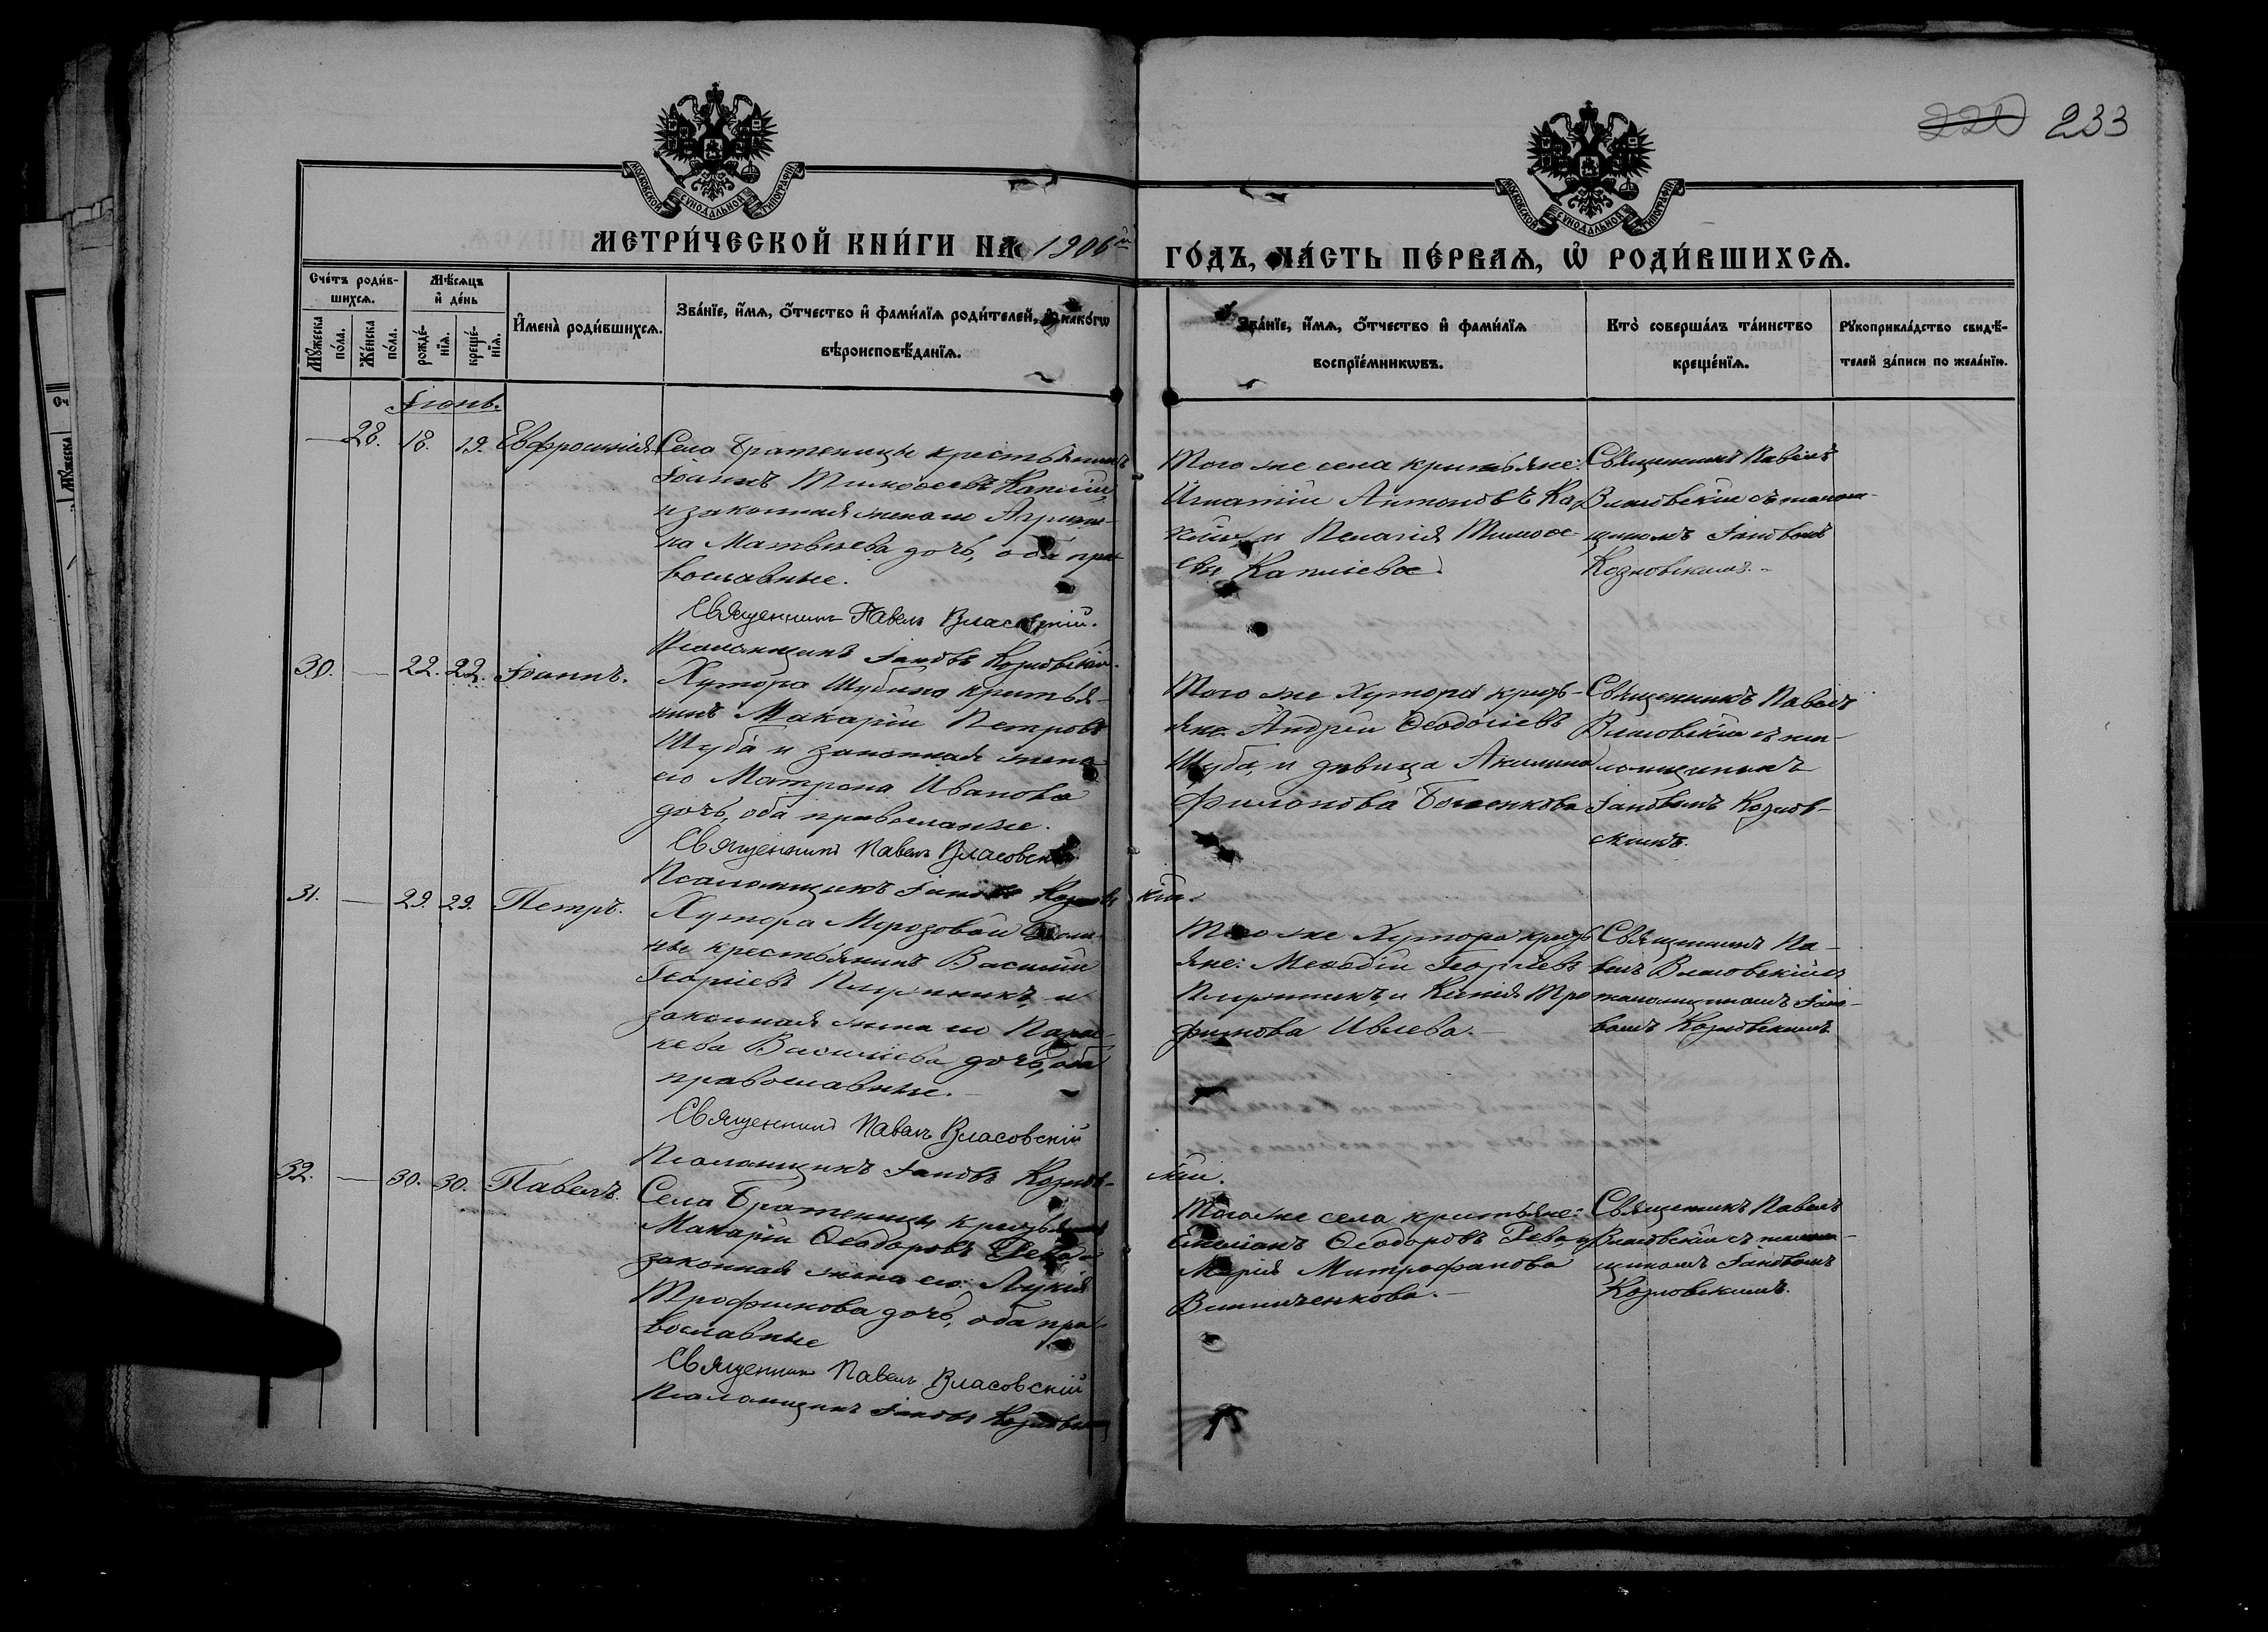 233
МОСКОВСКОЙ СѴНОДАЛЬНОЙ ТИПОГРАФІИ
МОСКОВСКОЙ СѴНОДАЛЬНОЙ ТИПОГРАФІИ
МЕТРИ́ЧЕСКОЙ КНИ́ГИ НА 1906й
ГО́ДЪ, ЧА́СТЬ ПЕ́РВАѦ, Ѡ҆ РОДИ́ВШИХСѦ.
Сче́тъ роди́в-
шихсѧ.
Мѣ́сѧцъ
и҆ де́нь
Мꙋ́жеска по́ла.
Же́нска по́ла.
рожде́-нїѧ.
креще́-нїѧ.
И҆мена̀ роди́вшихсѧ.
Зва́нїе, и҆́мѧ, ѻ҆́тчество и҆ фами́лїѧ роди́телей, и҆ како́гѡ
вѣроисповѣ́данїѧ.
Зва́нїе, и҆́мѧ, ѻ҆́тчество и҆ фами́лїѧ
воспрїе́мникѡвъ.
Кто̀ соверша́лъ та́инство
креще́нїѧ.
Рꙋкоприкла́дство свидѣ́-
телей за́писи по жела́нїю.
Іюнь.
— 28. 18. 19. Евфросинія
Села Братеницы крестьянинъ
Іоаннъ Тимофеевъ Капліи
и законная жена его Агрипи-
на Матвѣева дочь, оба пра-
вославные.
Священникъ Павелъ Власовскій.
Псаломщикъ Іаковъ Козловскій.
Того же села крестьяне:
Игнатій Антоновъ Ка-
и Пелагія Тимофе-
ева Каплиева.
Священникъ Павелъ
Власовскій съ псалом-
щикомъ Іаковомъ
Козловскимъ.
30. — 22. 22. Іоаннъ.
Хутора Шубино крестья-
нинъ Макарій Петровъ
Шуба и законная жена
его Матрона Иванова
дочь, оба православные.
Священникъ Павелъ Власовскій
Псаломщикъ Іаковъ Козловскій.
Того же Хутора кресть-
яне: Андрей Ѳеодосіевъ
Шуба, и дѣвица Акилина
Филонова
Священникъ Павелъ
Власовскій съ пса-
ломщикомъ
Іаковомъ Козлов-
скимъ.
31. — 29. 29. Петръ.
Хутора Морозовой
крестьянинъ Василій
Георгіевъ и
законная жена его Парас-
кева Василіева дочь, оба
православные.
Священникъ Павелъ Власовскій
Псаломщикъ Іаковъ Козлов-
скій.
Того же Хутора кресть-
яне: Меѳодій Георгіевъ
и Ксенія Тро-
фимова Ивлева.
Священникъ Па-
велъ Власовскій съ
псаломщикомъ Іако-
вомъ Козловскимъ.
32. — 30. 30. Павелъ.
Села Братеницы крестьянинъ
Макарій Ѳеодоровъ Рева, и
законная жена его Лукія
Трофимова дочь, оба пра-
вославные
Священникъ Павелъ Власовскій
Псаломщикъ Іаковъ Козловскій
Того же села крестьяне:
Емеліанъ Ѳеодоровъ Рева, и
Марія Митрофанова
Винниченкова.
Священникъ Павелъ
Власовскій съ псалом-
щикомъ Іаковомъ
Козловскимъ.